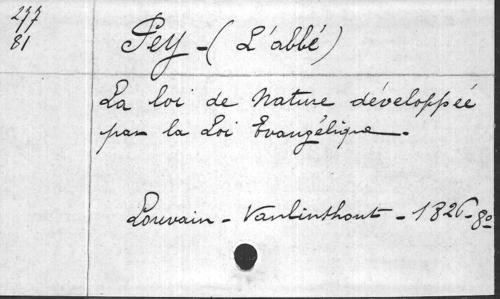 277
81
Pey - (L'abbé)
La loi de Nature développée
par la Loi Evangélique.
Louvain - Vanlinthout - 1826 - 8º